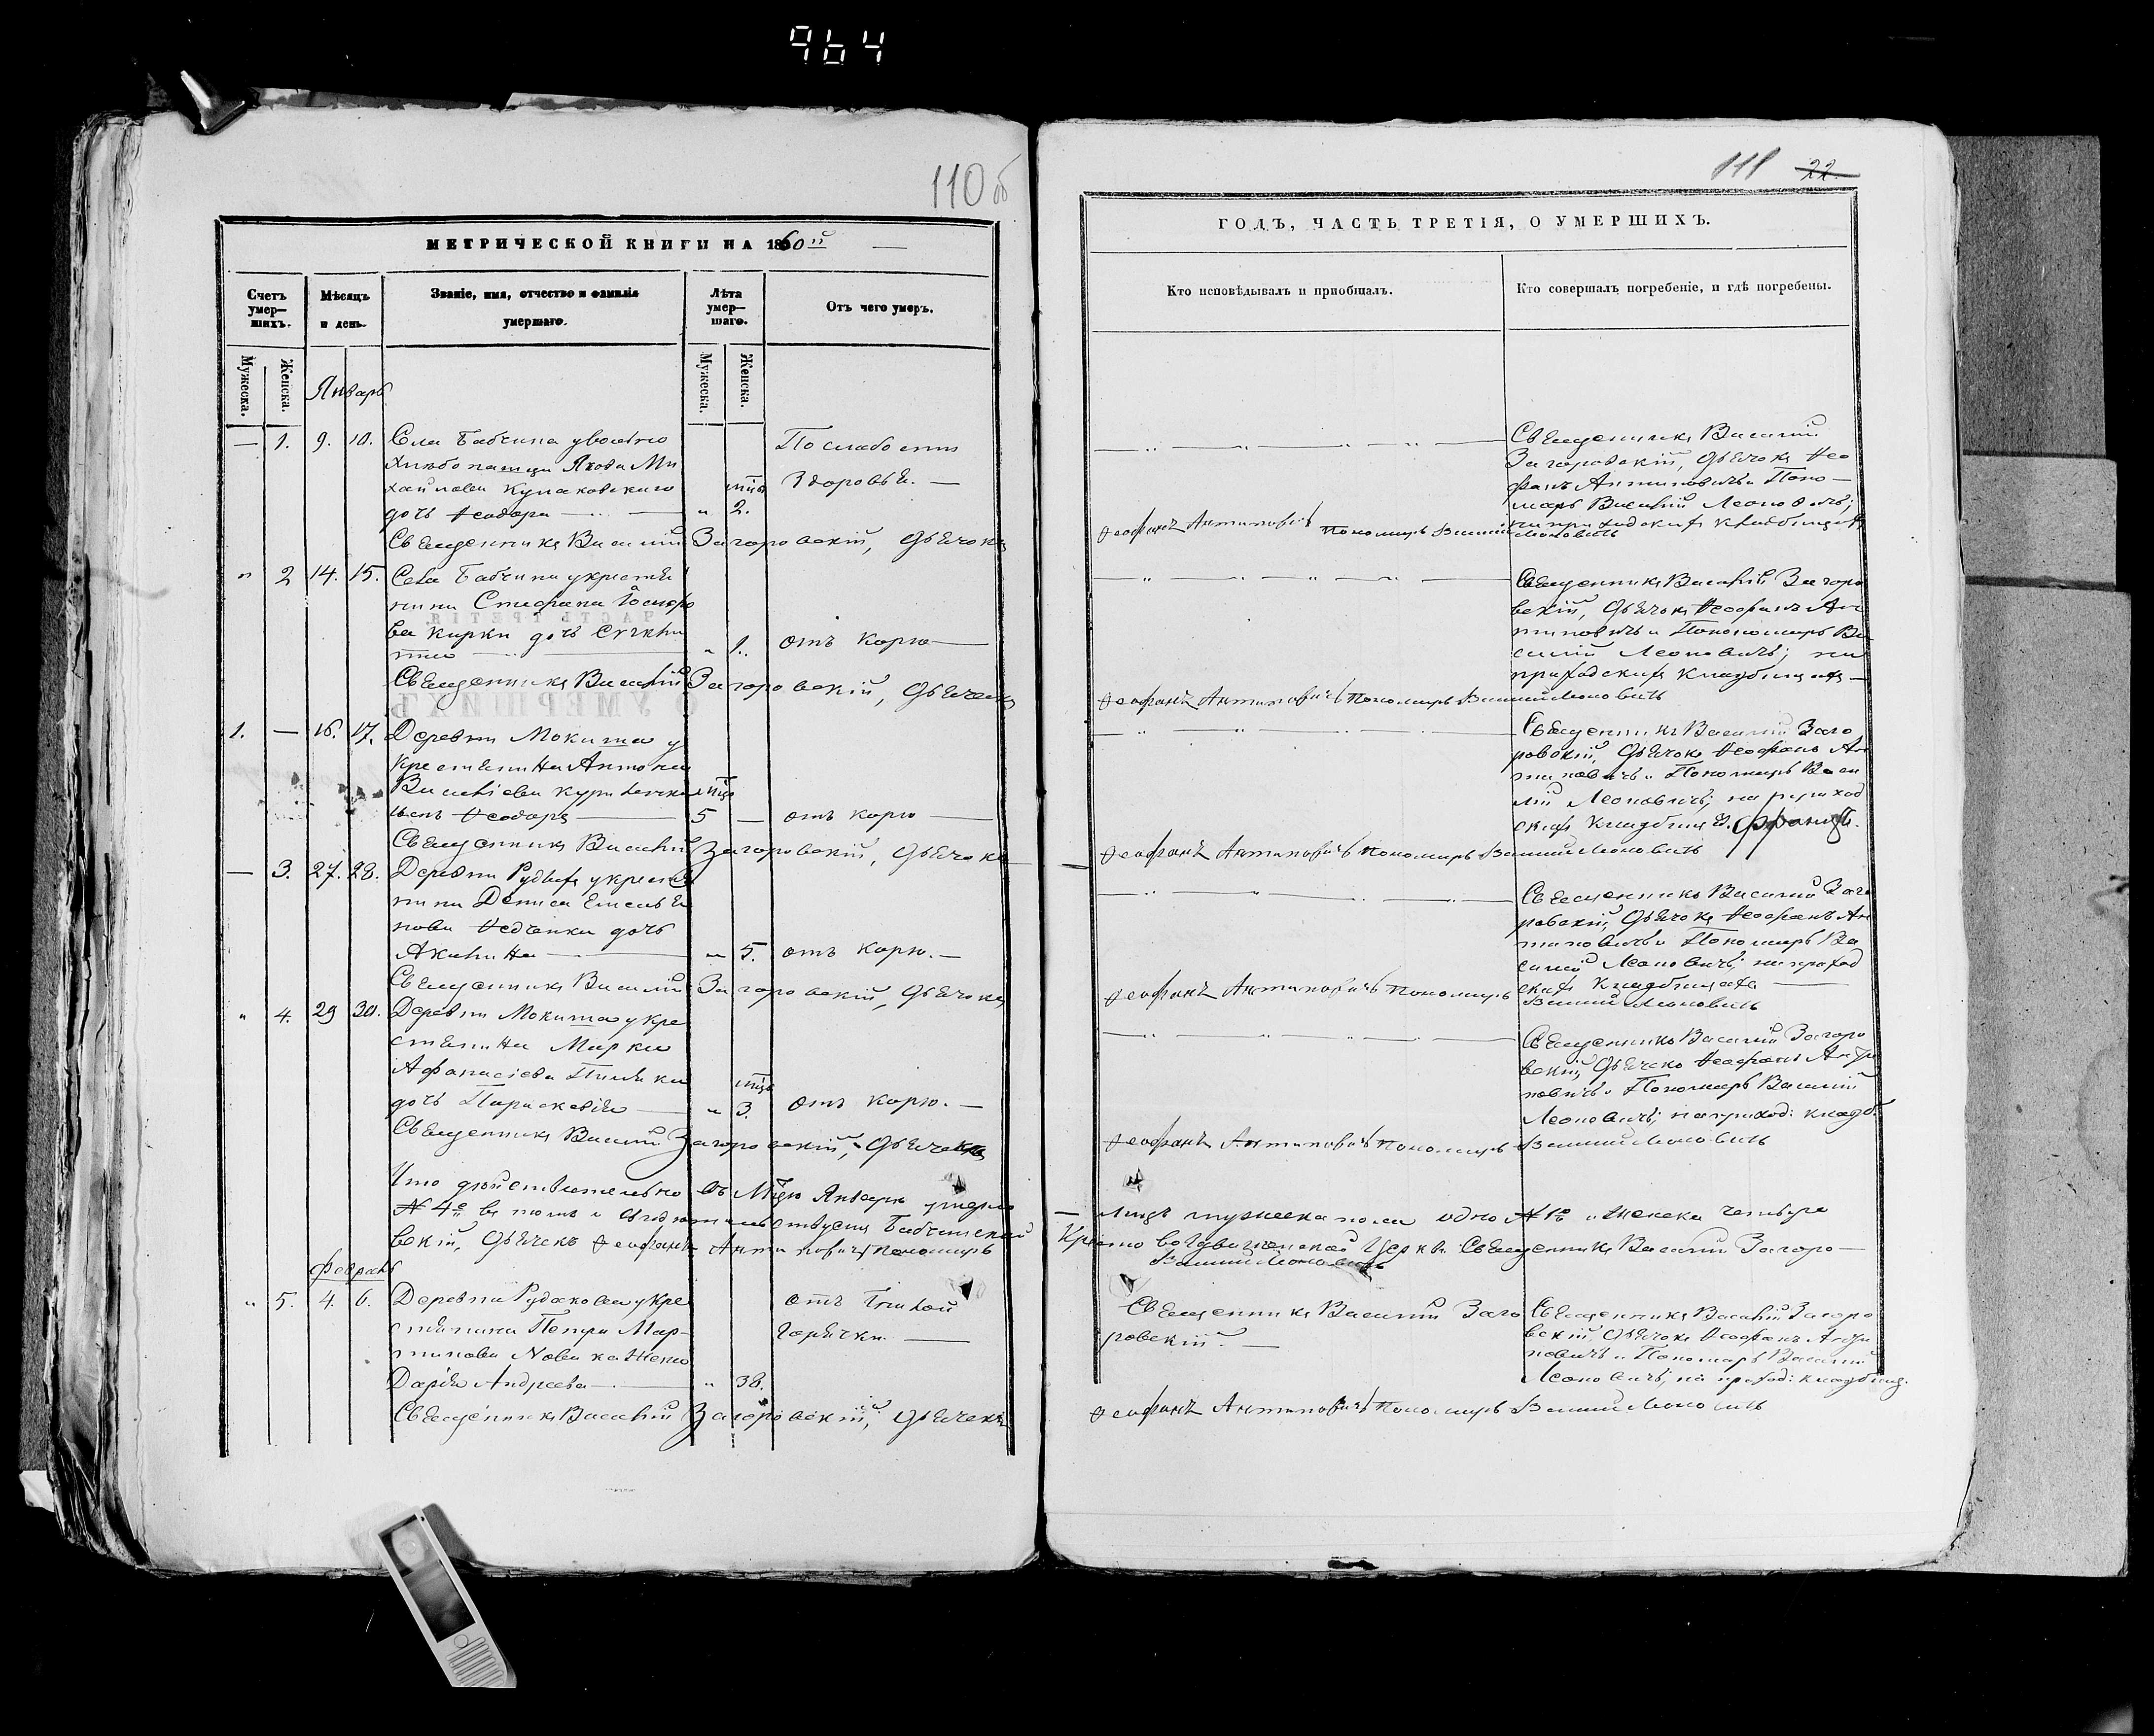 964
110 об
МЕТРИЧЕСКОЙ КНИГИ НА 1860й
Счетъ умер-шихъ.
Мѣсяцъ и день.
Званіе, имя, отчество и фамилія умершаго.
Лѣта умер-шаго.
Отъ чего умеръ.
Мужеска.
Женска.
Мужеска.
Женска.
Январь
— 1. 9. 10. Села Бабчина у вольно
По слабости
хлѣбопашца Якова Ми
хайлова Кулаковскаго
мцъ
здоровья. —
дочь Ѳеодора — " 2.
Священникъ Василій Загоровскій, Дьячокъ
" 2 14. 15. Села Бабчина у крестья
нина Стефана
ва Кирки дочь
" 1. отъ корю —
Священникъ Василій Загоровскій, Дьячекъ
1. — 16. 17. Деревни Мокиша у
крестьянина Антона
Василіева
мцъ
сынъ Ѳеодоръ — 5 — отъ корю —
Священникъ Василій Загоровскій, Дьячокъ
— 3. 27. 28. Деревни у кресть
нина Дениса Емелья
нова Ѳедченки дочь
Акилина — " 5. отъ корю. —
Священникъ Василій Загоровскій, Дьячокъ
" 4. 29 30. Деревни Мокиша у кре
стьянина Марка
Афанасіева
мцъ
дочь Параскевія — " 3. отъ корю. —
Священникъ Василій Загоровскій, Дьячекъ
Что дѣйствительно въ Мцѣ Январѣ умерло
№ 4е въ томъ Бабчинской
вскій, Дьячекъ Ѳеофанъ Антиповичъ Пономарь
Февраль
" 5. 4. 6. Деревни Рудакова у кре
отъ Гнилой
стьянина Петра Мар-
горячки. —
тинова Новика жена
Дарія Андреева — " 38.
Священникъ Василій Загоровскій, Дьячекъ
111 22
ГОДЪ, ЧАСТЬ ТРЕТІЯ, О УМЕРШИХЪ.
Кто исповѣдывалъ и пріобщалъ.
Кто совершалъ погребеніе, и гдѣ погребены.
Священникъ Василій
Загоровскій, Дьячокъ Ѳео
фанъ Антиповичъ и Поно—
марь Василій Леоновичъ;
на приходскомъ кладбищѣ
Ѳеофанъ Антиповичъ Пономарь Василій Леоновичъ
Священникъ Василій Загоро
вскій, Дьячокъ Ѳеофанъ Ан
типовичъ и Пономарь Ва
силій Леоновичъ; на
приходскихъ кладбищахъ —
Ѳеофанъ Антиповичъ Пономарь Василій Леоновичъ
Священникъ Василій Заго
ровскій, Дьячокъ Ѳеофанъ Ан
типовичъ и Пономарь Васи
лій Леоновичъ; на приход
Ѳеофанъ Антиповичъ Пономарь Василій Леоновичъ
Священникъ Василій Заго
ровскій, Дьячокъ Ѳеофанъ Ан
типовичъ и Пономарь Ва
силій Леоновичъ; на приход
скихъ кладбищахъ —
Ѳеофанъ Антиповичъ Пономарь Василій Леоновичъ
Священникъ Василій Загоро
вскій, Дьячекъ Ѳеофанъ Анти
повичъ и Пономарь Василій
Леоновичъ; на приход: кладб:
Ѳеофанъ Антиповичъ Пономарь Василій Леоновичъ
— лицъ мужеска пола одно № 1е и женска четыре
Крестовоздвиженской Церкви Священникъ Василій Загоро—
Василій Леоновичъ
Священникъ Василій Заго
ровскій. —
Священникъ Василій Загоро
вскій, Дьячокъ Ѳеофанъ Анти
повичъ и Пономарь Василій
Леоновичъ, на приход: кладбищ.
Ѳеофанъ Антиповичъ Пономарь Василій Леоновичъ